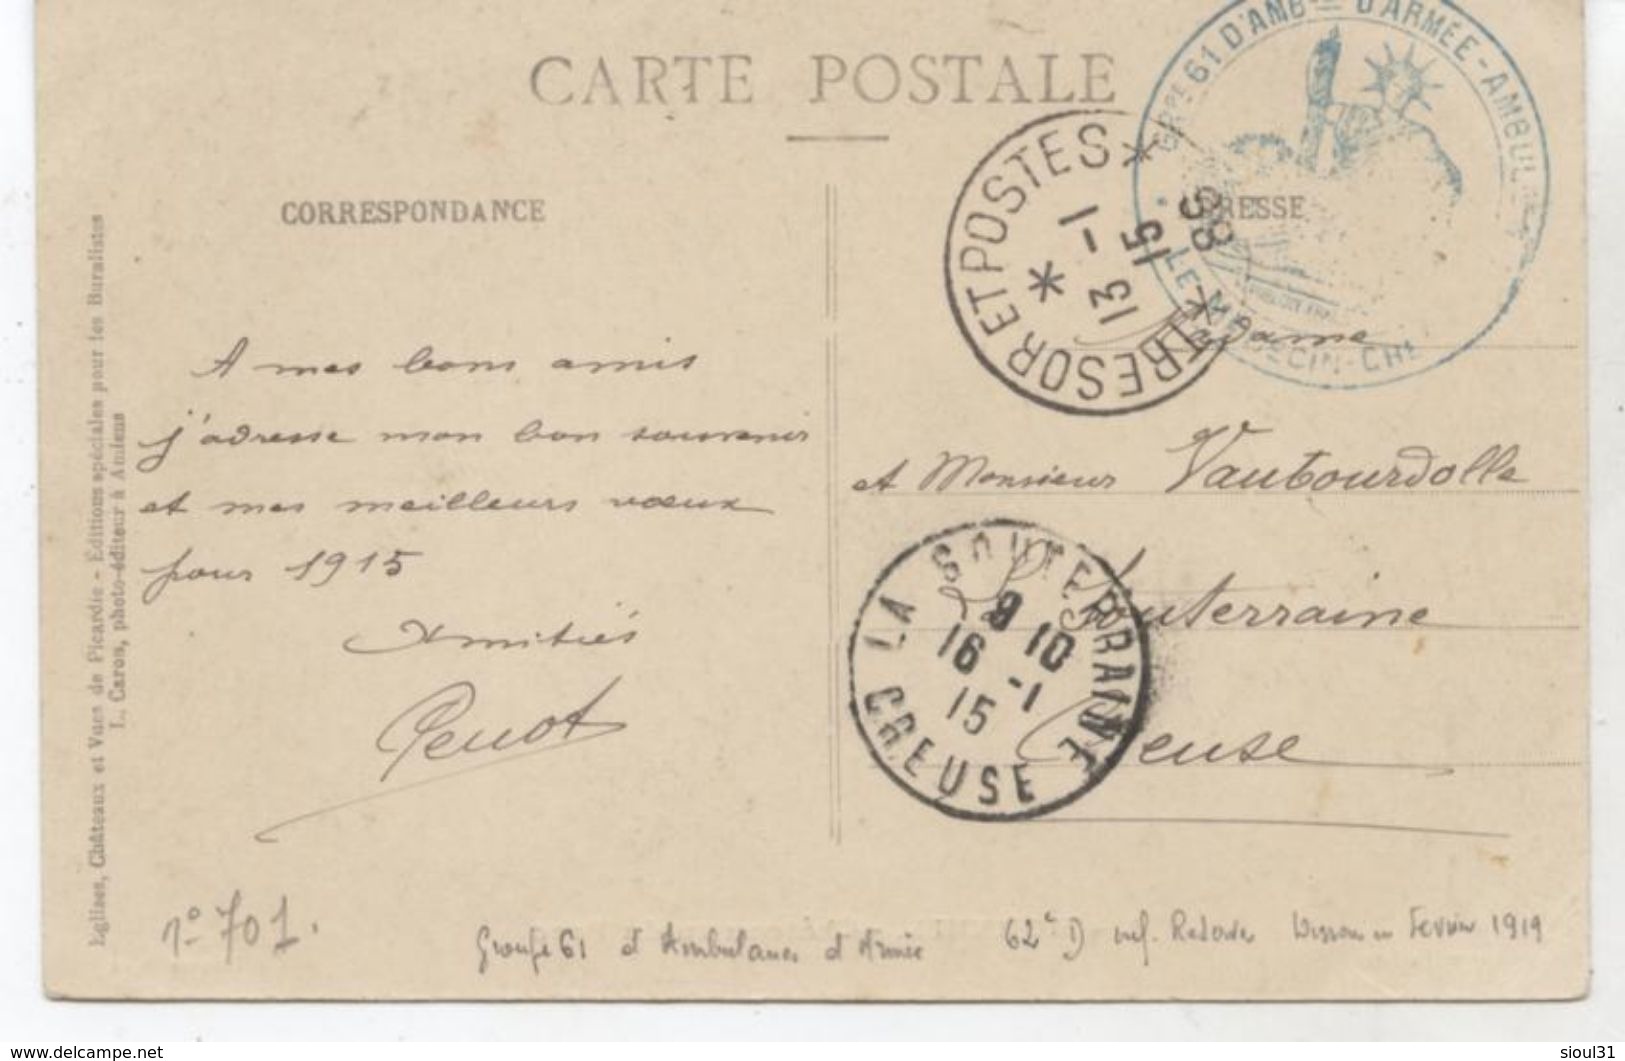 CARTE POSTALE
CORRESPONDANCE
ADRESSE
GRPE 61 D'AMB D'ARMÉE - AMBUL
LE MÉDECIN-CHE
TRESOR ET POSTES
13 -1
15
* 86 *
A mes bons amis
j'adresse mon bon souvenir
et mes meilleurs vœux
pour 1915
Amitiés
Penot
Madame
et Monsieur Vaubourdolle
La Souterraine
Creuse
LA SOUTERRAINE
8 10
16 -1
15
CREUSE
Eglises, Châteaux et Vues de Picardie - Éditions spéciales pour les Buralistes
L. Caron, photo-éditeur à Amiens
no 701.
Groupe 61 d'Ambulances d'Armée 62e D inf. en Fevrier 1919
sioul31
www.delcampe.net